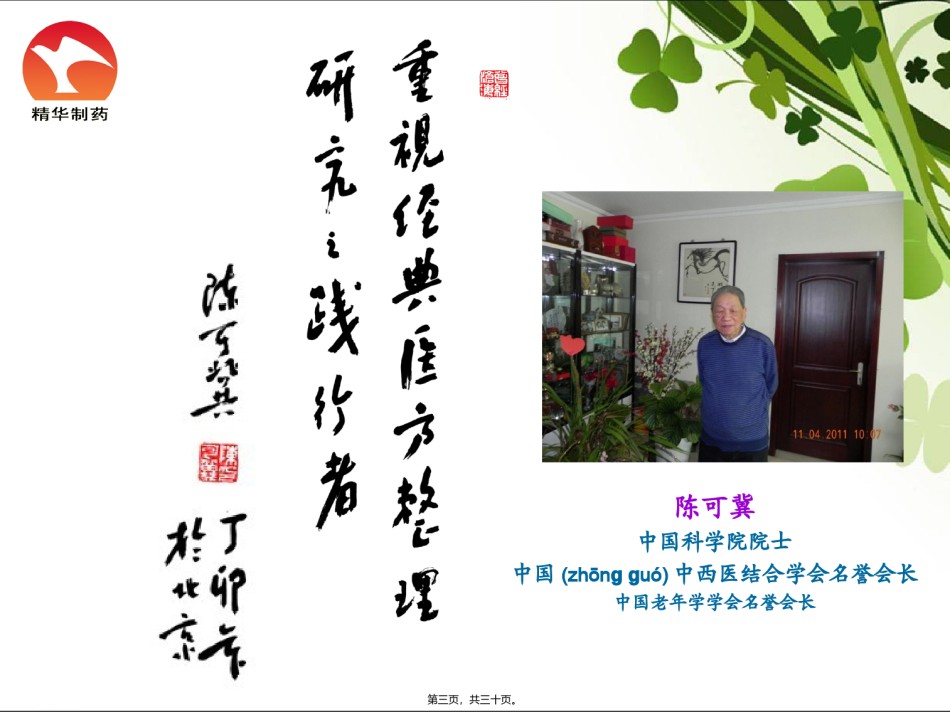 精华制药
重視经典医方整理
研究之践行者
陈可冀
丁卯年
於北京
11 04 2011 10:07
陈可冀
中国科学院院士
中国 (zhōng guó) 中西医结合学会名誉会长
中国老年学学会名誉会长
第三页，共三十页。